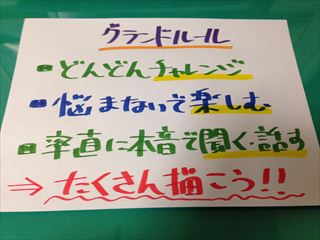 グランドルール
どんどんチャレンジ
悩まないで楽しむ
率直に本音で聞く・話す
⇒ たくさん描こう!!